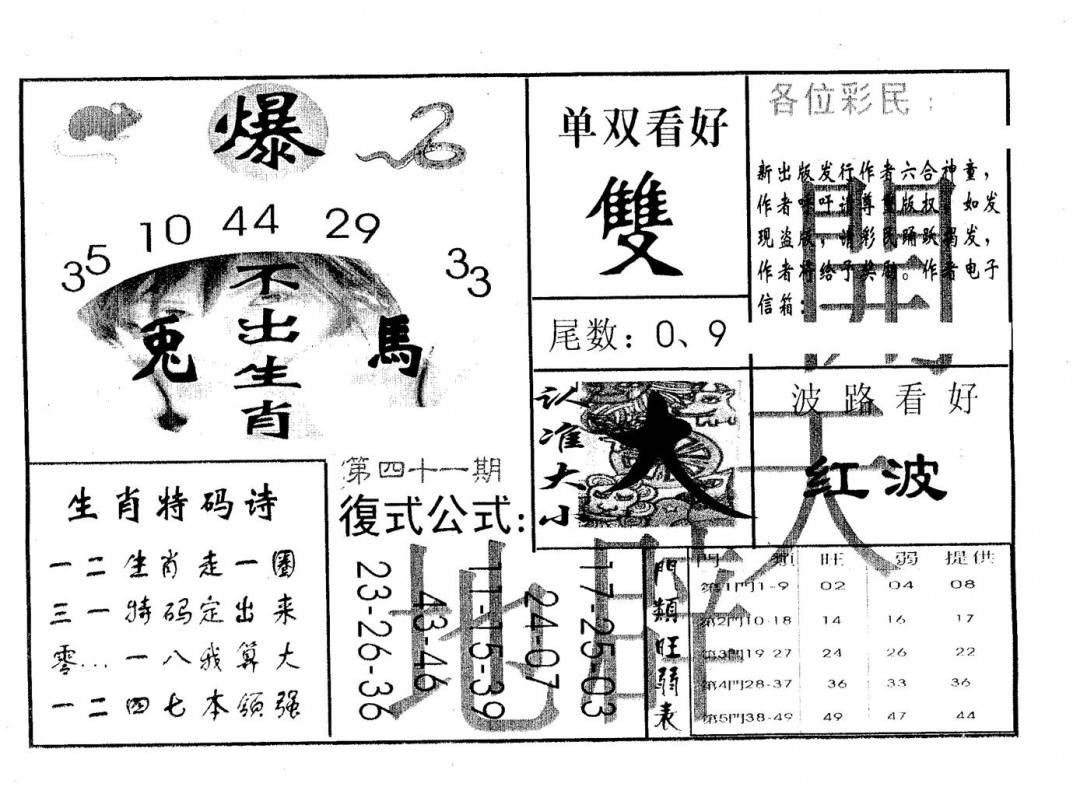 爆
35 10 44 29 33
不出生肖
兎 馬
单双看好
雙
尾数：0、9
各位彩民：
新出版发行作者六合神童，
作者呼吁请尊重版权，如发
现盗版，请彩民踊跃揭发，
作者将给予奖励。作者电子
信箱：
認准大小
大
波路看好
红波
生肖特码诗
一二生肖走一圈
三一特码定出来
零…一八我算大
一二四七本领强
第四十一期
復式公式：
23-26-36
43-46
11-15-39
24-07
17-25-03
門類旺弱表
門 類 旺 弱 提供
第1门1-9 02 04 08
第2門10-18 14 16 17
第3門19-27 24 26 22
第4門28-37 36 33 36
第5門38-49 49 47 44
開
天
地